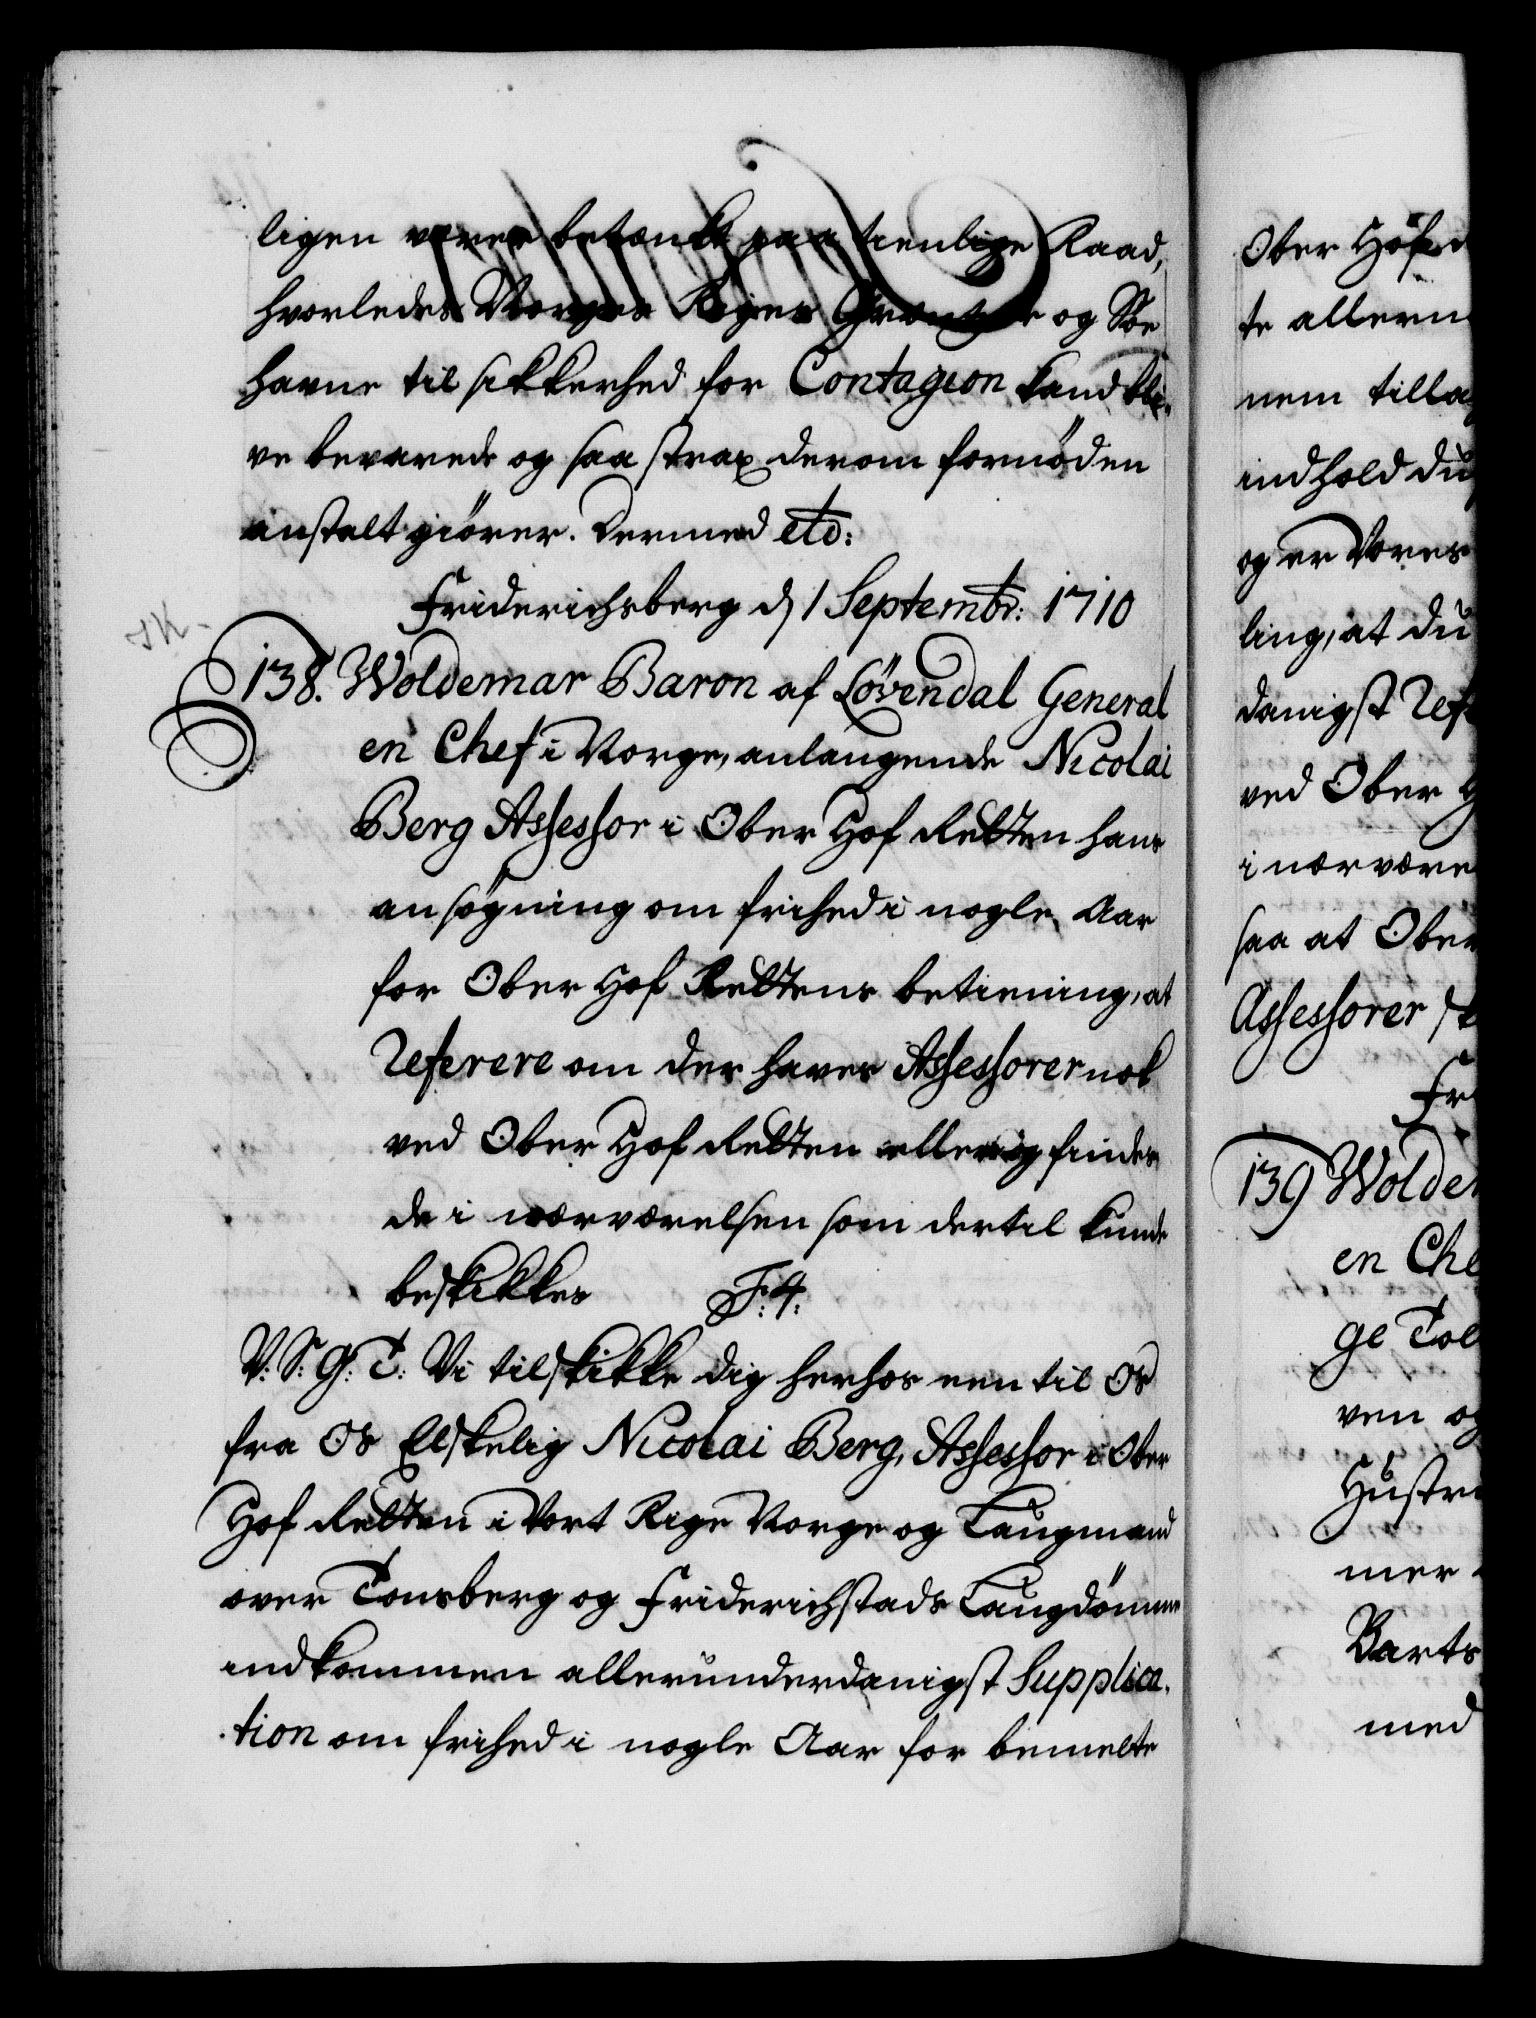 ligen værer betænkt paa tienlige Raad,
hvorledes Norges Riges Grentzer og Søe
havne til sikkerhed for Contagion kand bli-
ve bevarede og saa strax derom fornøden
anstalt giører. Dermed etc:
Friderichsberg d 1 Septembr: 1710
138. Woldemar Baron af Løvendal General
en Chef i Norge, anlangende Nicolai
Berg Assessor i Ober Hof Retten hans
ansøgning om frihed i nogle Aar
for Ober Hof Rettens betiening, at
referere om der haver Assessorer nok
ved Ober Hof Retten eller og findes
de i nærværelsen som dertil kunde
beskikkes F: 4:
V: S: G: T: Vi tilskikke dig herhos een til Os
fra Os Elskelig Nicolai Berg, Assessor i Ober
Hof Retten i Vort Rige Norge og Laugmand
over Tonsberg og Friderichstads Laugdømme
indkommen allerunderdanigst Supplica-
tion om frihed i nogle Aar for bemelte
Ober Hof
te allern
nem tilla
indhold du
og er Vores
ling, at du
danigst Ref
ved Ober H
i nærvære
saa at Ober
Assessorer
Fr
139 Wolde
en Che
ge Tol
ven og
Hustru
mer
Barts
med